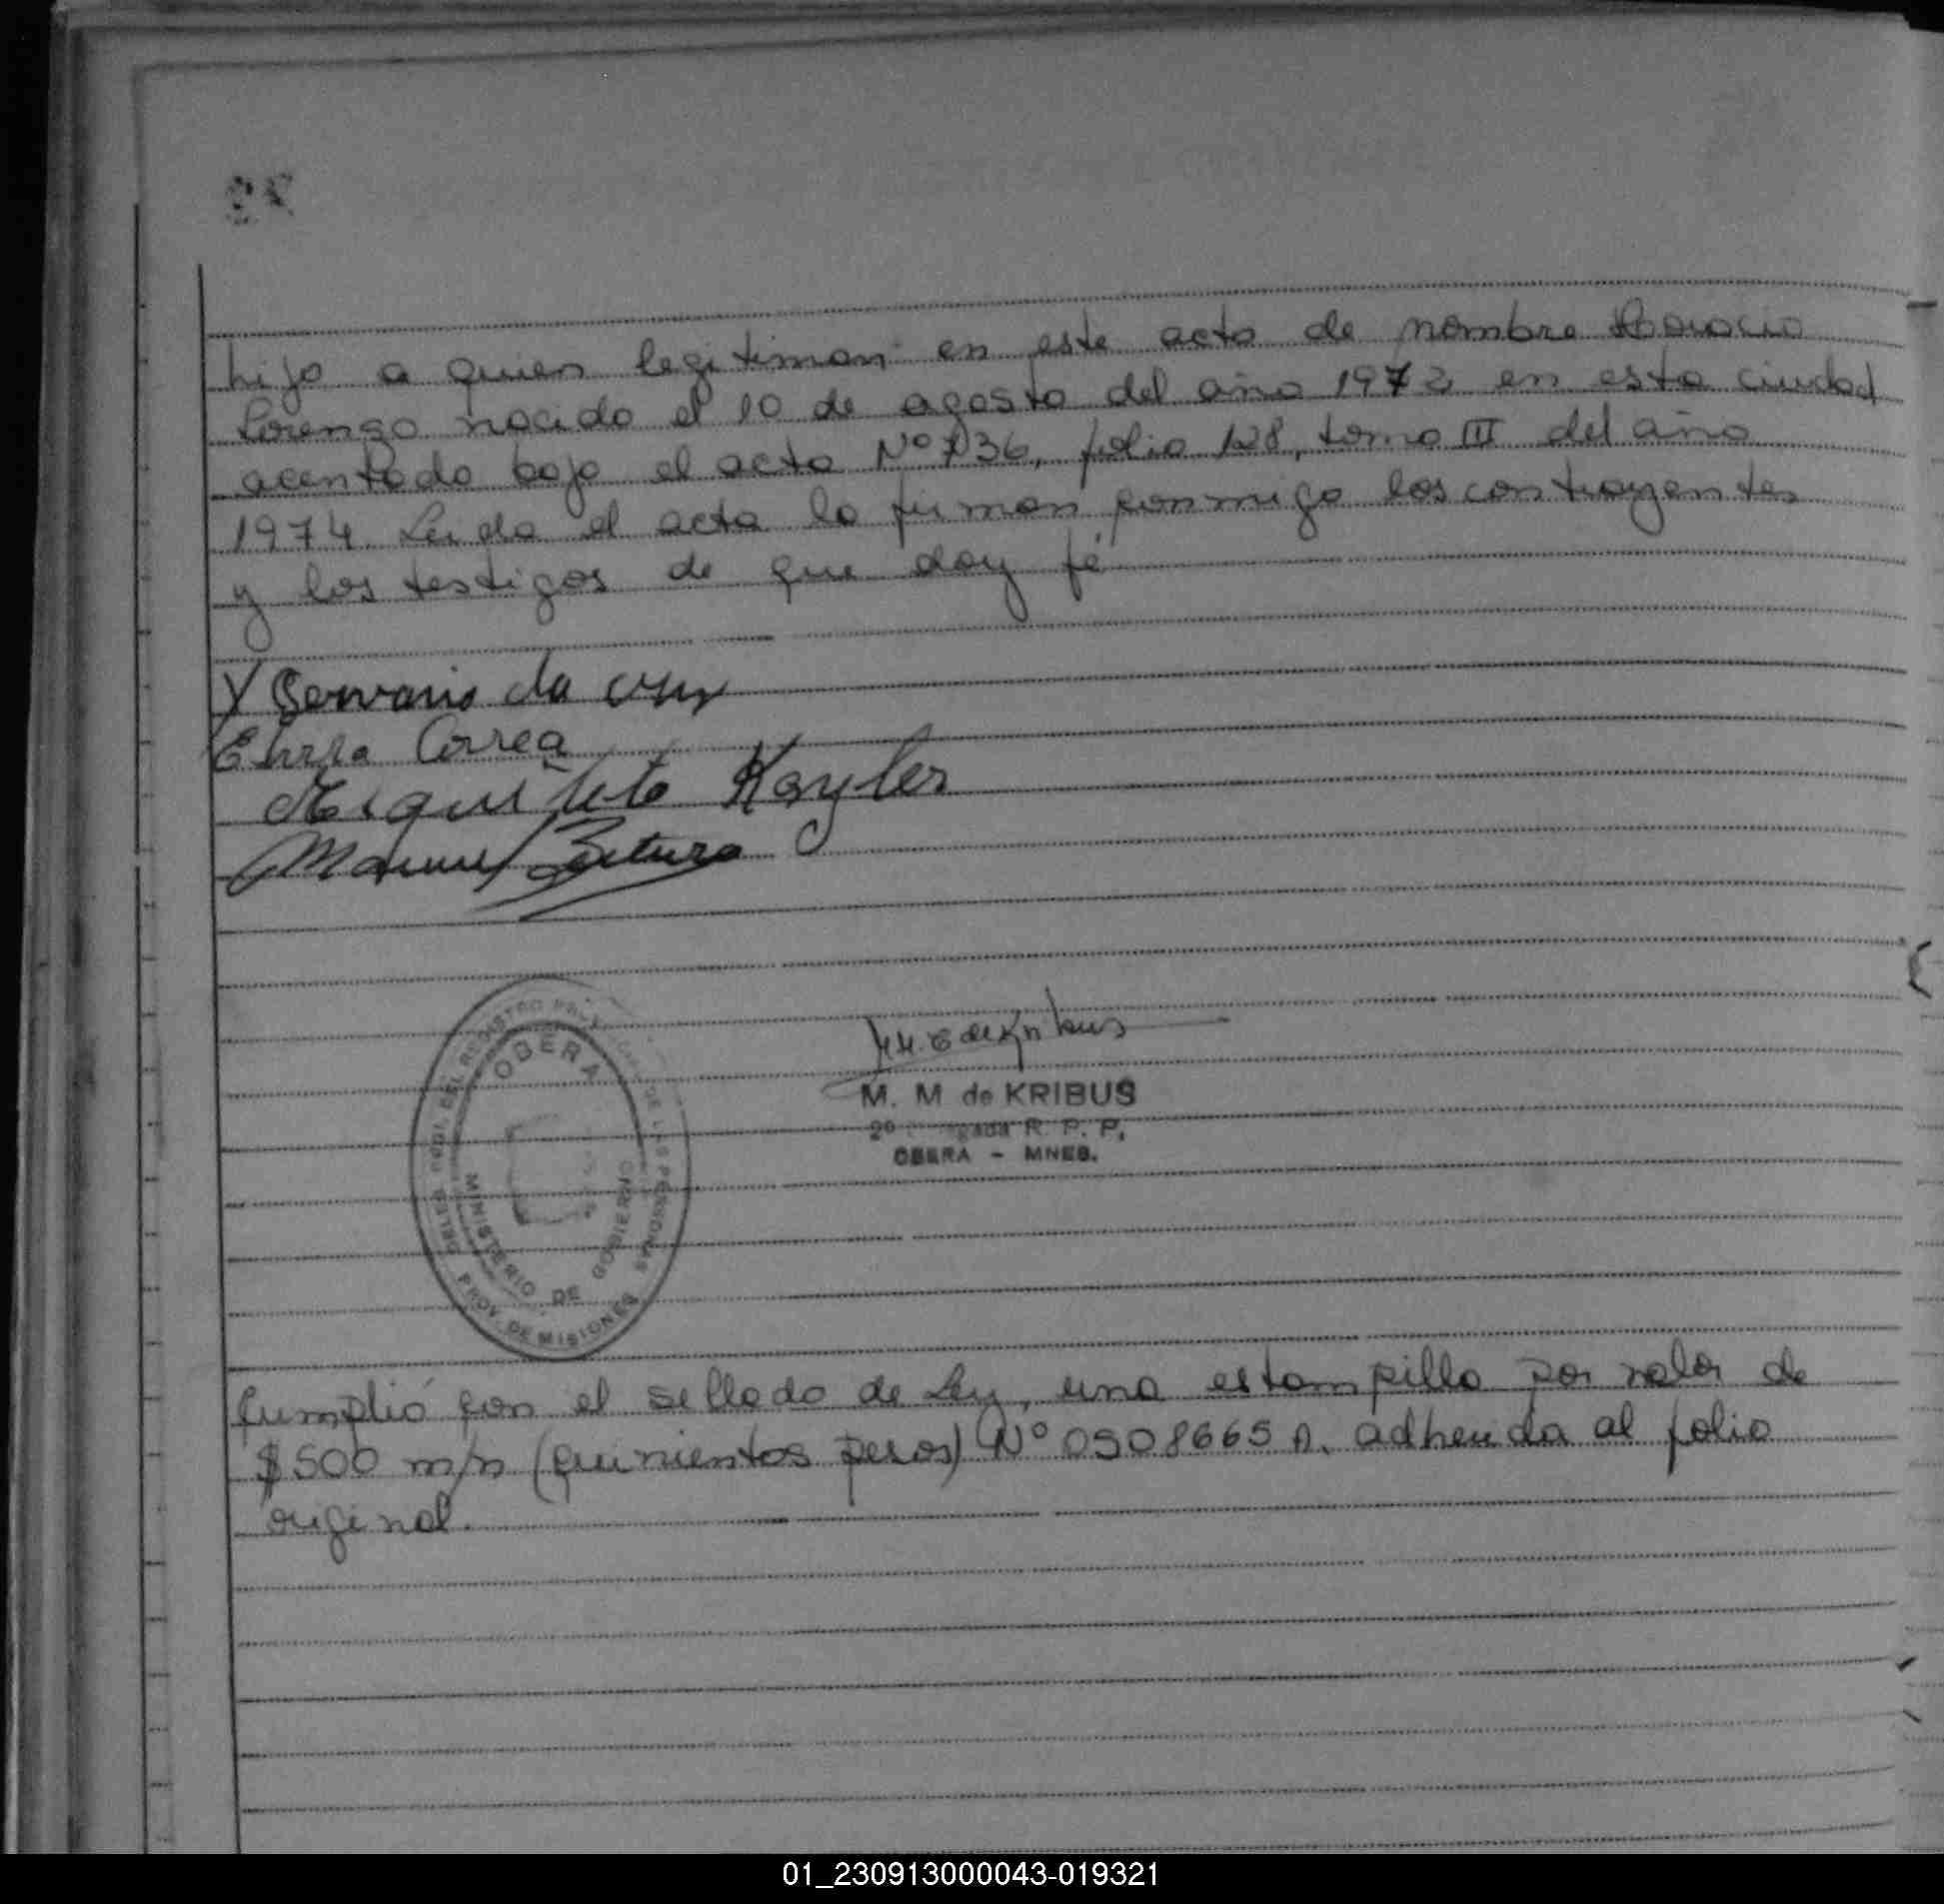 hijo a quien legitiman en este acto de nombre Horacio
Lorenzo nacido el 10 de agosto del año 1972 en esta ciudad
acentado bajo el acta Nº 736, folio 128, tomo III del año
1974. Leida el acta la firman conmigo los contrayentes
y los testigos de que doy fé
X Gervasio da cruz
Correa
Kayler
Manuel
OBERA
MINISTERIO DE GOBIERNO
PROV. DE MISIONES
M. M de KRIBUS
2º R. P. P.
OBERA - MNES.
Cumplió con el sellado de Ley, una estampilla por valor de
$500 m/n (quinientos pesos) Nº 0508665 A. adherida al folio
original.
01_230913000043-019321